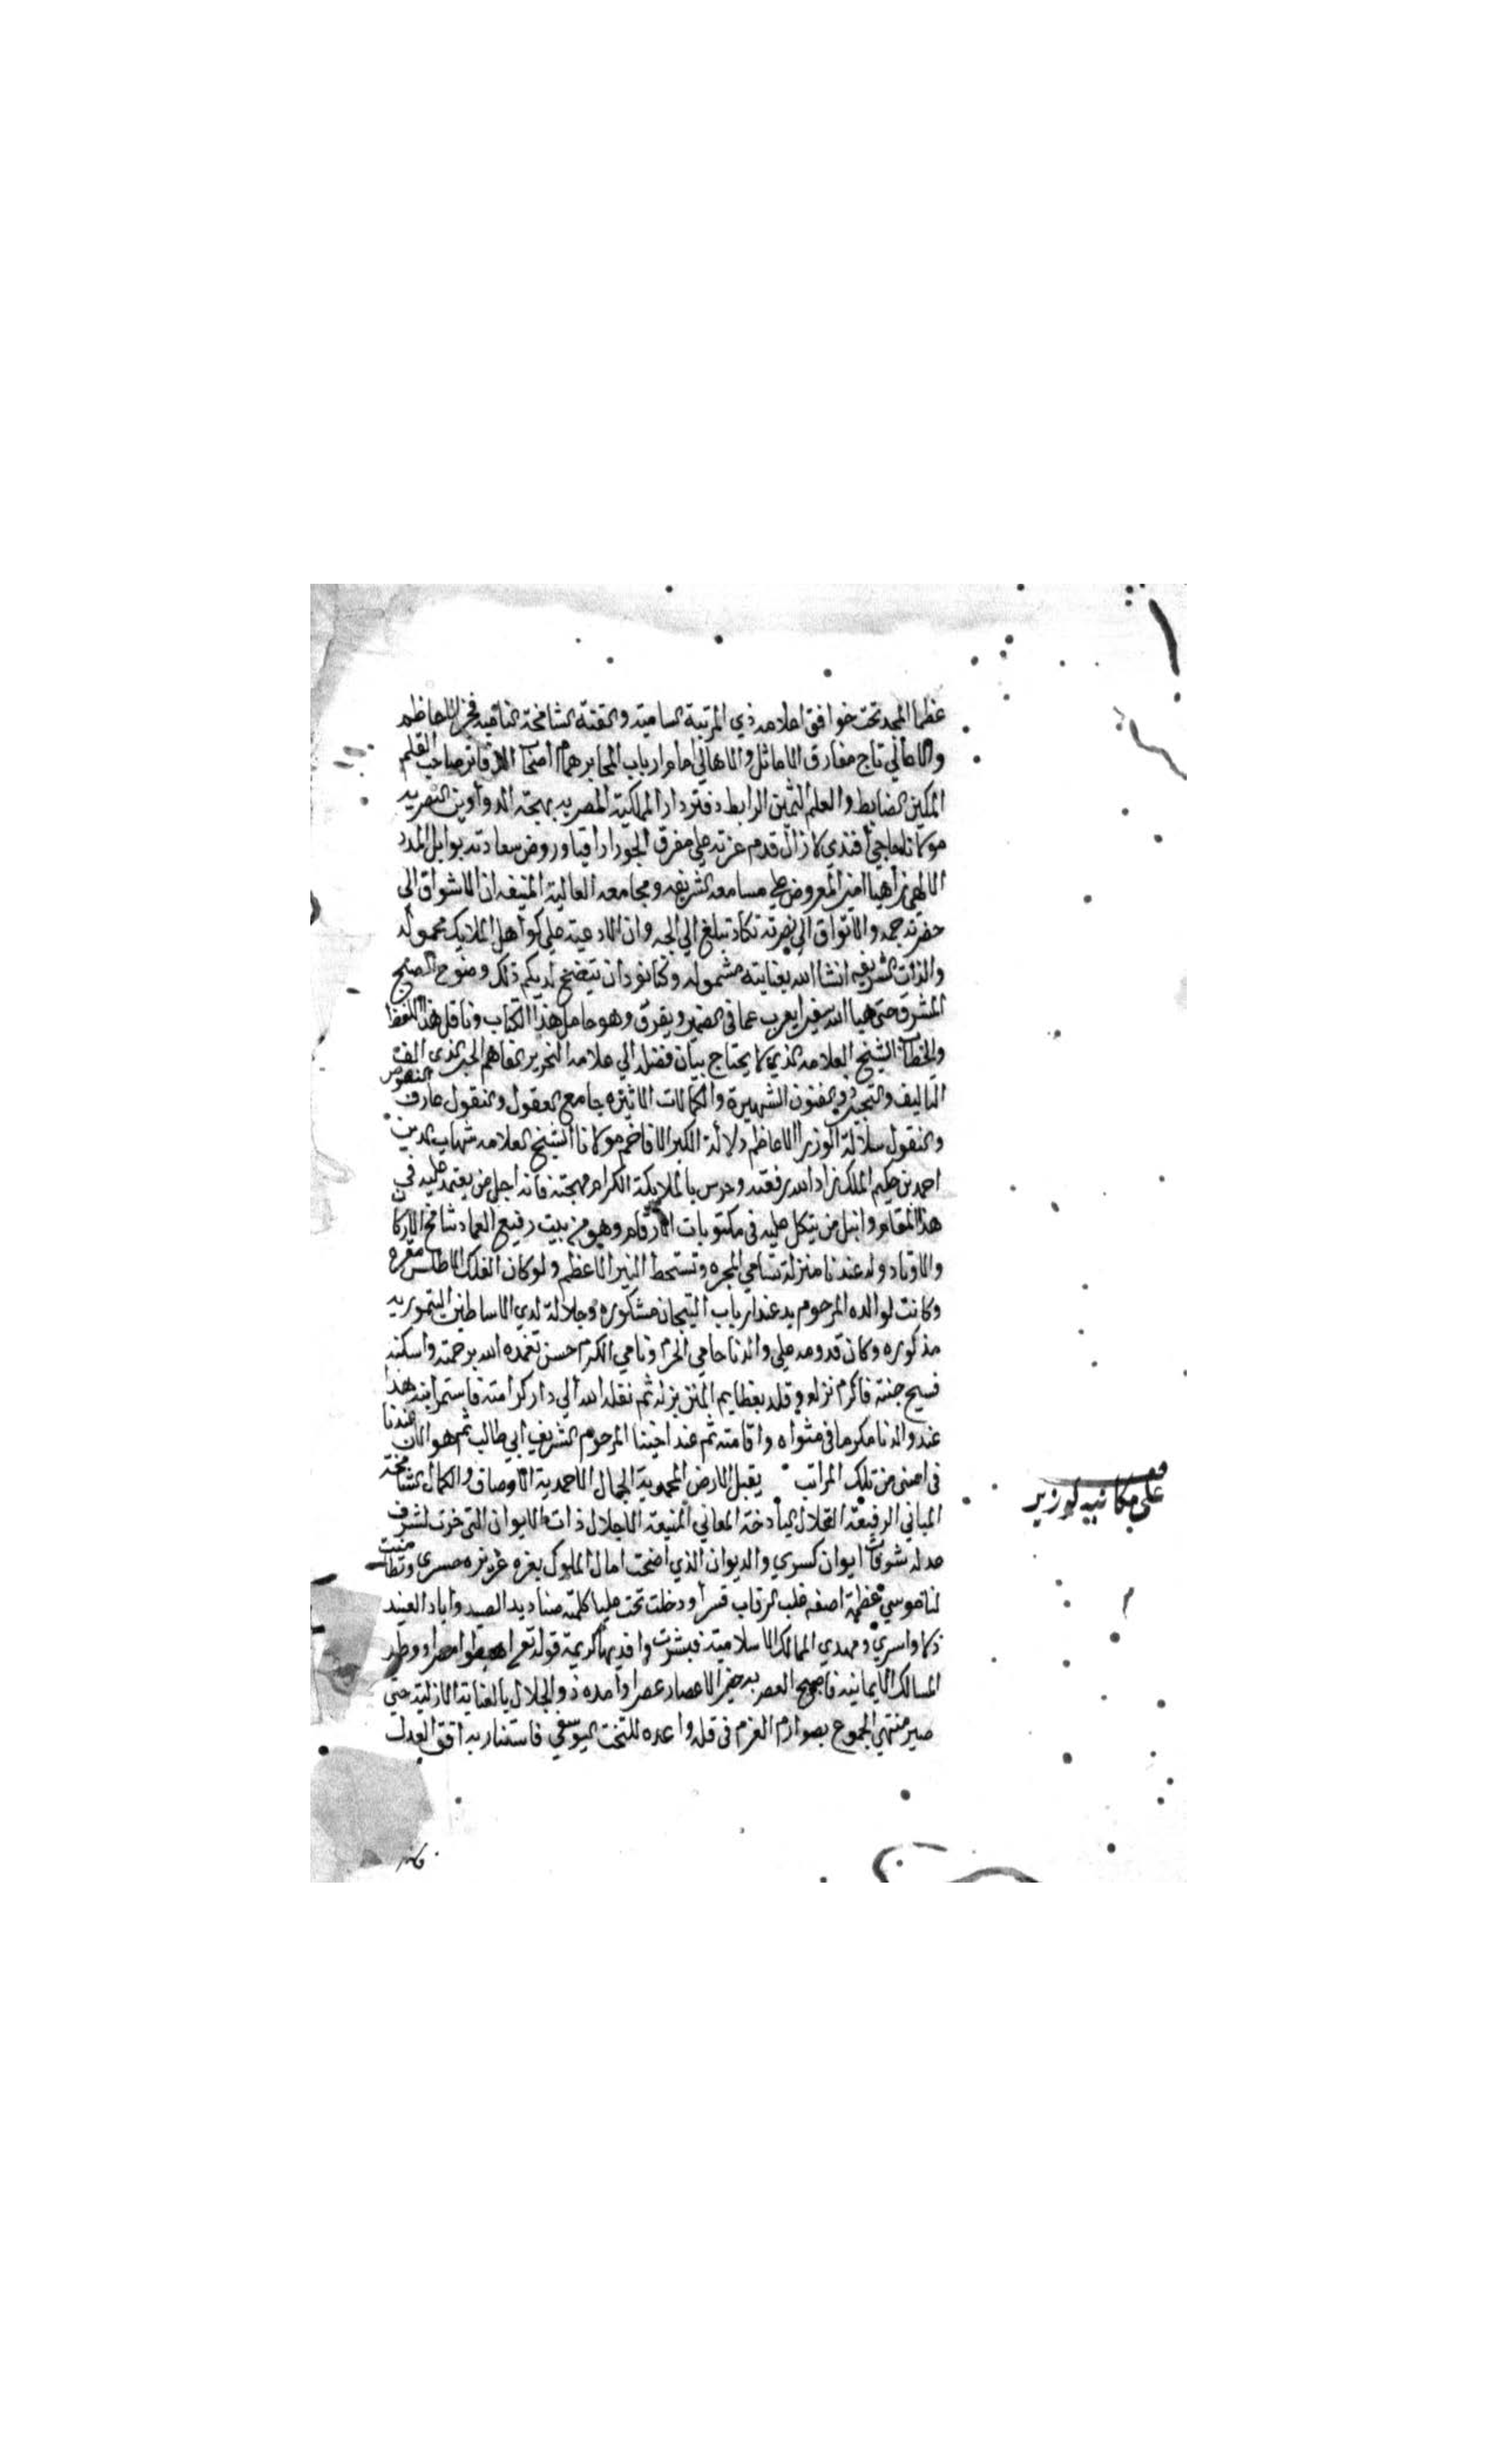 عظما المجد تحت خوافق اعلامه ذي المرتبة السامية والقنة الشامخة النامية فخر الاعاظم
والاعالي تاج مفارق الاماثل والاهالي امام ارباب المحابر همام اصحاب الدفاتر صاحب القلم
المكين الضابط والعلم الثمين الرابط دفتر دار المملكة المصريه بهجة الدواوين
مولانا حاجي افندي لا زال قدم عزته علي مفرق الجوزا راقيا وروض سعادته بوابل المدد
الالهي زاهيا امين المعروض علي مسامعه الشريفه ومجامعه العالية المنيفه ان الاشواق الي
حضرته جمه والاتواق الي نضرته تكاد تبلغ الي الجه وان الادعية علي كواهل الملايك محموله
والذات الشريفه انشا الله بعنايته مشموله وكنا نود ان يتضح لديكم ذلك وضوح الصبح
المشرق حتي هيا الله سفيرا يعرب عما في الضمير ويفرق وهو حامل هذا الكتاب وناقل هذا اللفظ
والخطاب الشيخ العلامه الذي لا يحتاج بيان فضله الي علامه النحرير الفاهم الحبر الذي الف
التاليف والتجريد ذو الفنون الشهيرة والكمالات الاثيره جامع المعقول والمنقول عارف النصوص
والنقول سلالة الوزرا الاعاظم دلالة الكبرا الافاخم مولانا الشيخ العلامه شهاب الدين
احمد بن حكيم الملك زاد الله رفعته وحرس بالملايكة الكرام مهجته فانه اجل من يعتمد عليه في
هذا المقام وانبل من يتكل عليه في مكتوبات الارقام وهو من بيت رفيع العماد شامخ الاركان
والاوتاد وله عندنا منزلة تسامي المجره وتستحط النير الاعظم ولو كان الفلك الاطلس مقره
وكانت لوالده المرحوم يد عند ارباب التيجان مشكوره وجلالة لدي الاساطين التيموريه
مذكوره وكان قدومه علي والدنا حامي الحرم ونامي الكرم حسن تغمده الله برحمته واسكنه
فسيح جنته فاكرم نزله وقلد بعظايم المنن بزله ثم نقله الله الي دار كرامته فاستمر ابنه هذا
عند والدنا مكرما في مثواه واقامته ثم عند اخينا المرحوم الشريف ابي طالب ثم هو الان عندنا
في اسني من تلك المراتب يقبل الارض المحمدية الجمال الاحمدية الاوصاف والكمال الشامخة
المباني الرفيعة القلال الباذخة المعاني المنيعة الاجلال ذات الايوان التي خرت لشرف
عدله شرفات ايوان كسري والديوان الذي اضحت امال الملوك بغره غزيزه حسري وتطامنت
لناموسي عظمة اصفه غلب الرقاب قسرا ودخلت تحت عليا كلمته صناديد الصيد واباد العنيد
ذكا واسري ومهدي الممالك الاسلامية فبشرت وافديها كريمة قوله تعالي اهبطوا مصرا ووطد
المسالك الايمانيه فاصبح العصر به خير الاعصار عصرا وامده ذو الجلال بالعناية الازلية حتي
صير منتهي الجموع بصوارم العزم في قله واعده للتخت اليوسفي فاستنار به افق العدل
علي مكاتبيه لوزير